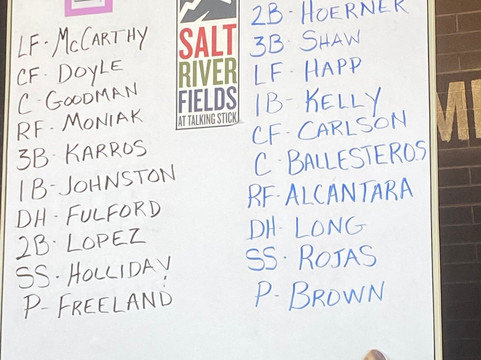 LF - McCARTHY
CF - DOYLE
C - GOODMAN
RF - MONIAK
3B - KARROS
1B - JOHNSTON
DH - FULFORD
2B - LOPEZ
SS - HOLLIDAY
P - FREELAND
SALT
RIVER
FIELDS
AT TALKING STICK
2B - HOERNER
3B - SHAW
LF - HAPP
1B - KELLY
CF - CARLSON
C - BALLESTEROS
RF - ALCANTARA
DH - LONG
SS - ROJAS
P - BROWN